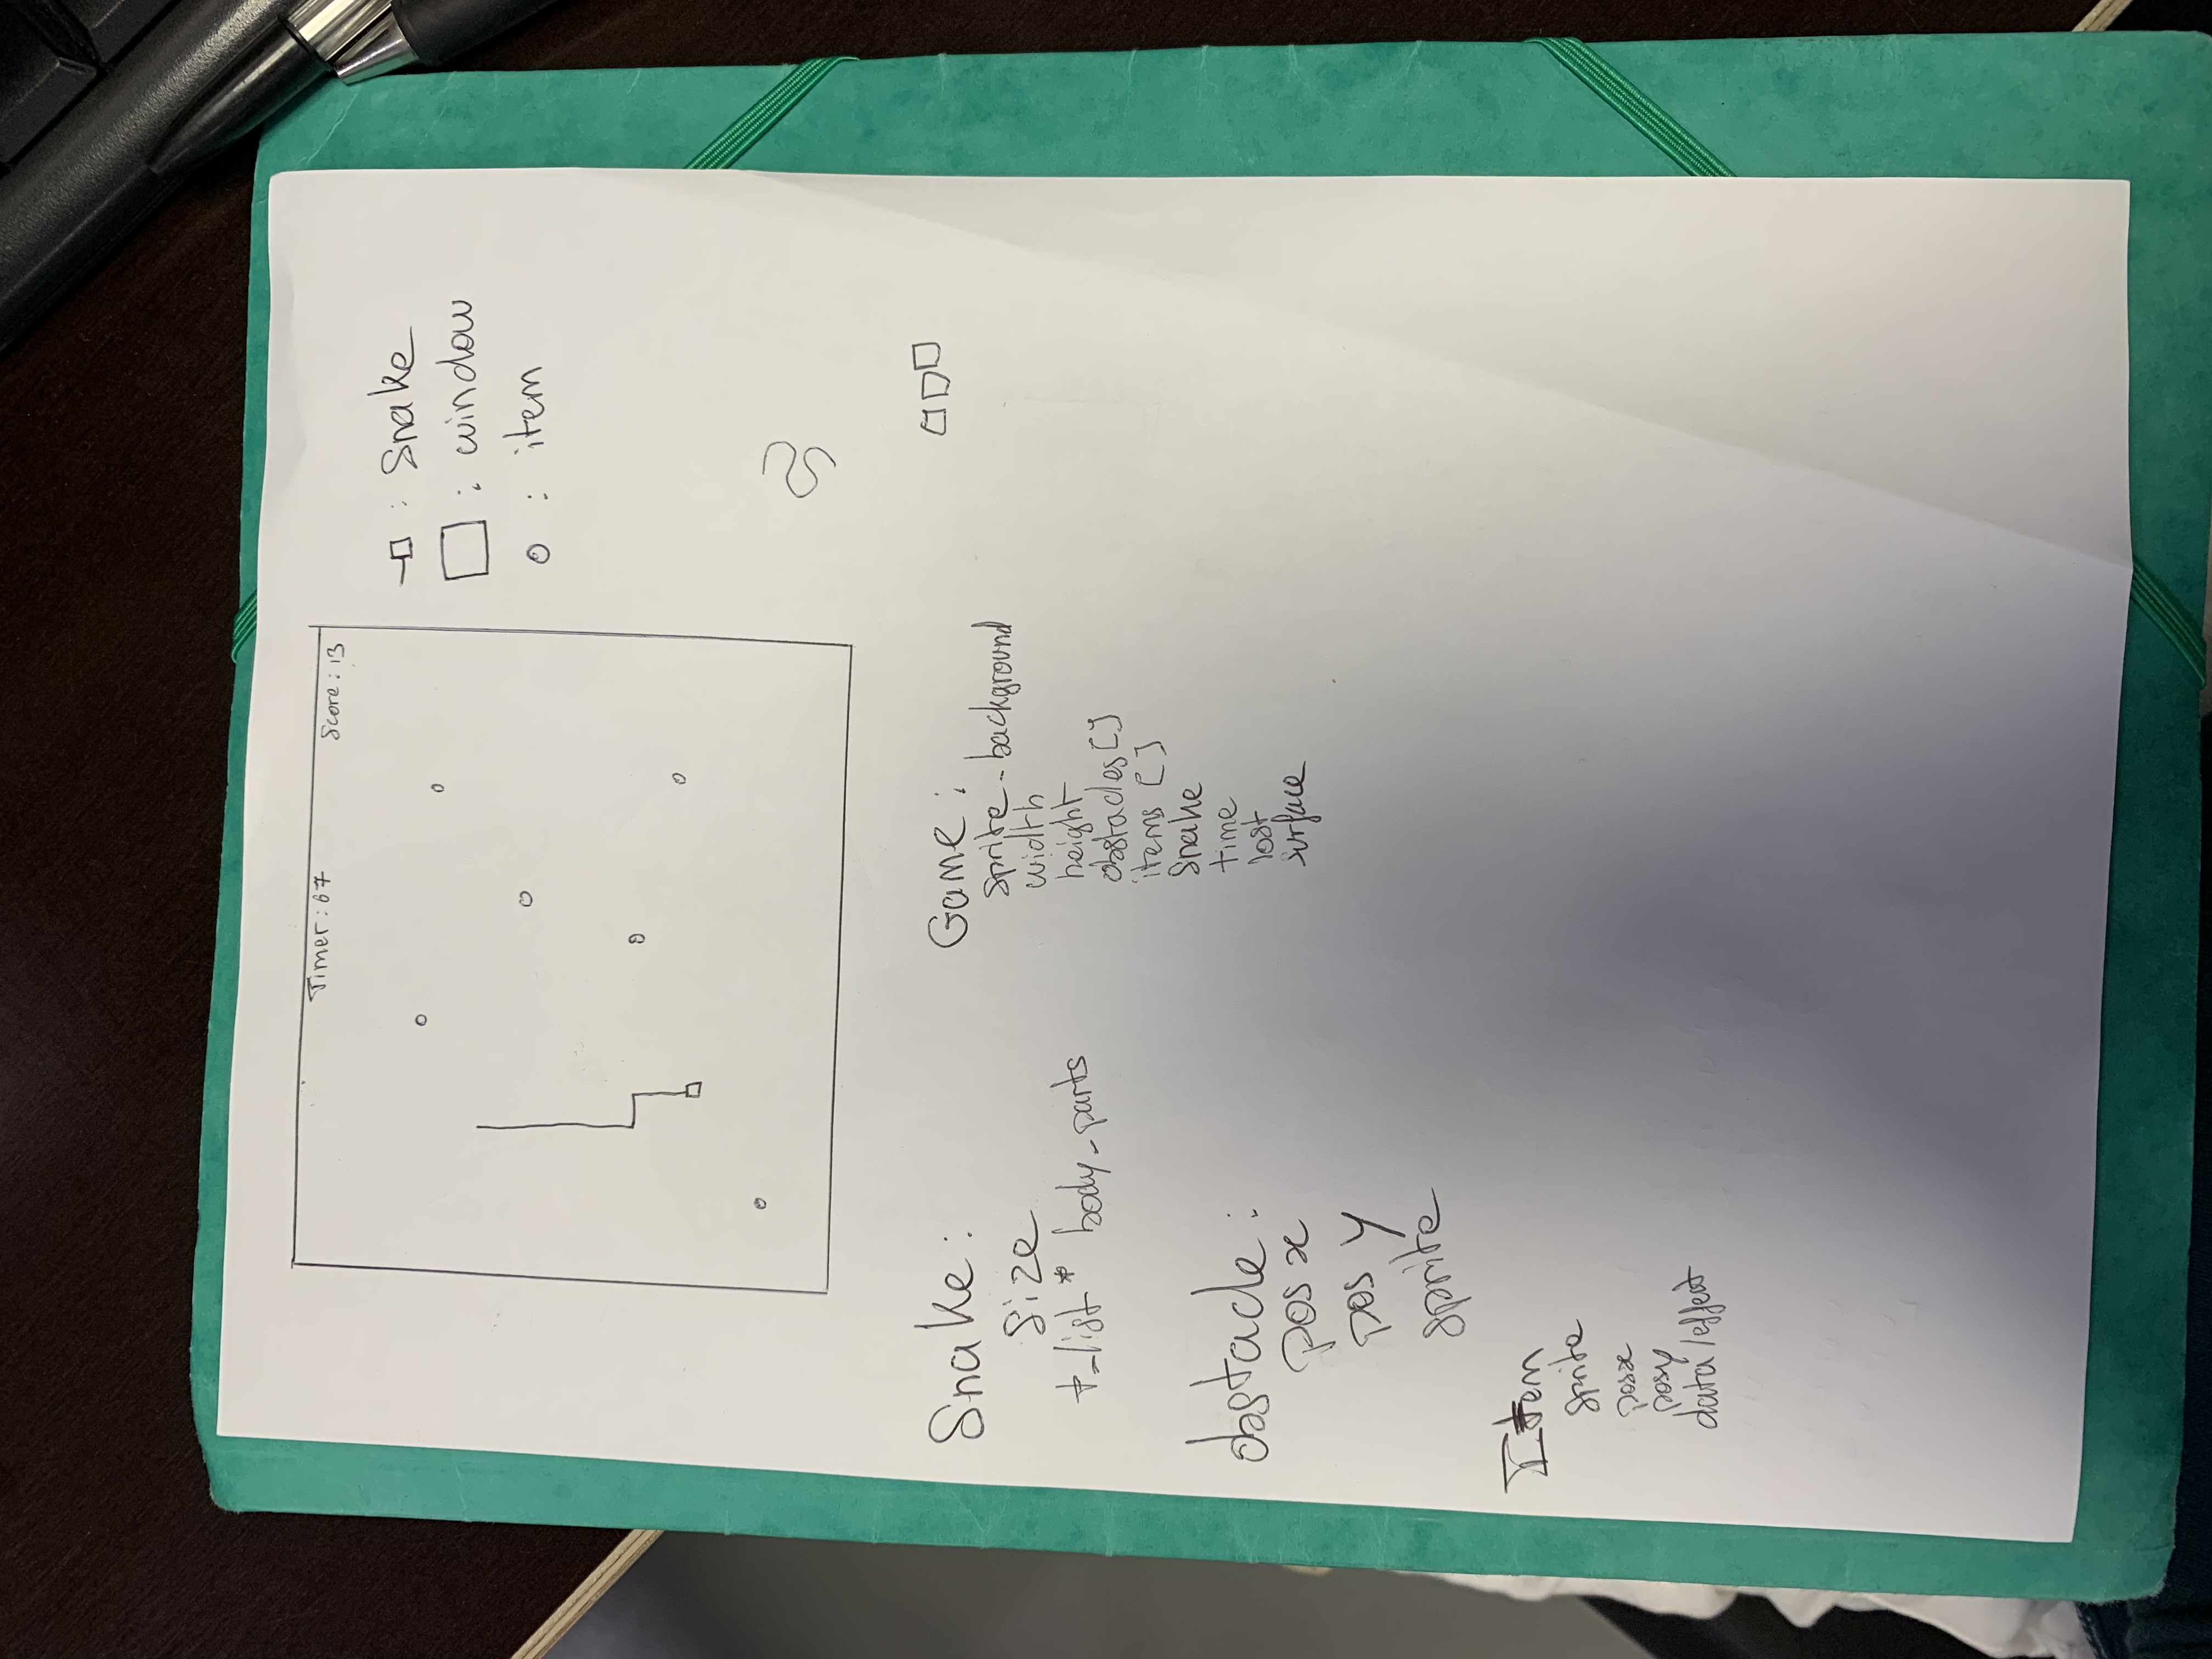 Timer: 67
Score: 13
: Snake
: window
: item
Snake:
size
t_list* body_parts
obstacle:
pos x
pos y
sprite
Item
sprite
posx
posy
data/effect
Game:
sprite_background
width
height
obstacles[]
items []
Snake
time
lost
surface